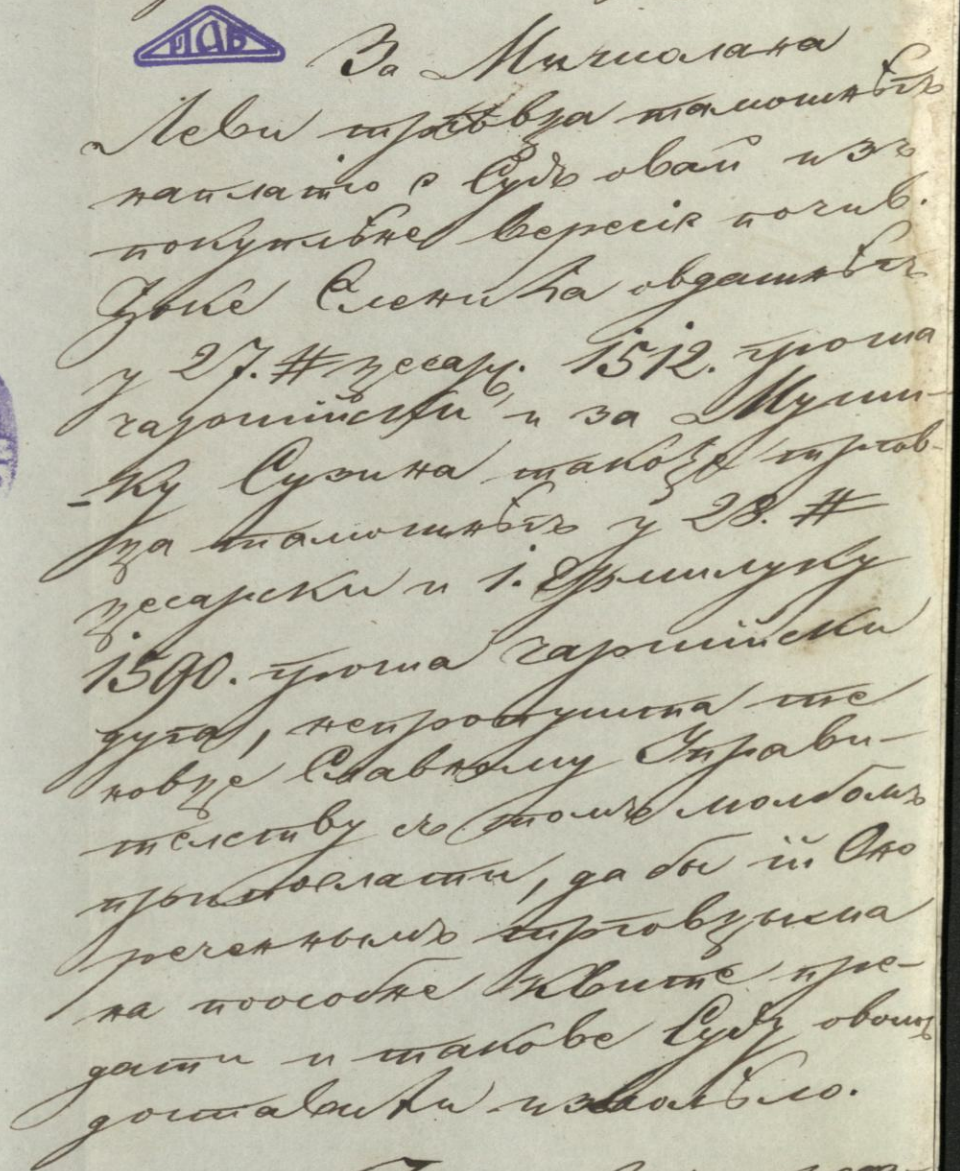 ИАБ
За Мичиолана
Леви трговца тамошнѣгъ
наплатіо є Судъ овай изъ
покупльне вересіє почив.
Цоке Сленића овдашнѣгъ
у 27. # цесар. 1512. гроша
чаршійски и за Муши-
ку Сузина такође тргов-
ца тамошнѣгъ у 28. #
цесарски и 1. Єрмилуку
1590. гроша чаршійски
дуга, непропушта те
новце Славному Управи-
телству съ томъ молбомъ
припослати, да бы ій Оно
реченнымъ трговцыма
на поособне Квите пре-
дати и такове Суду овомъ
доставити изволѣло.